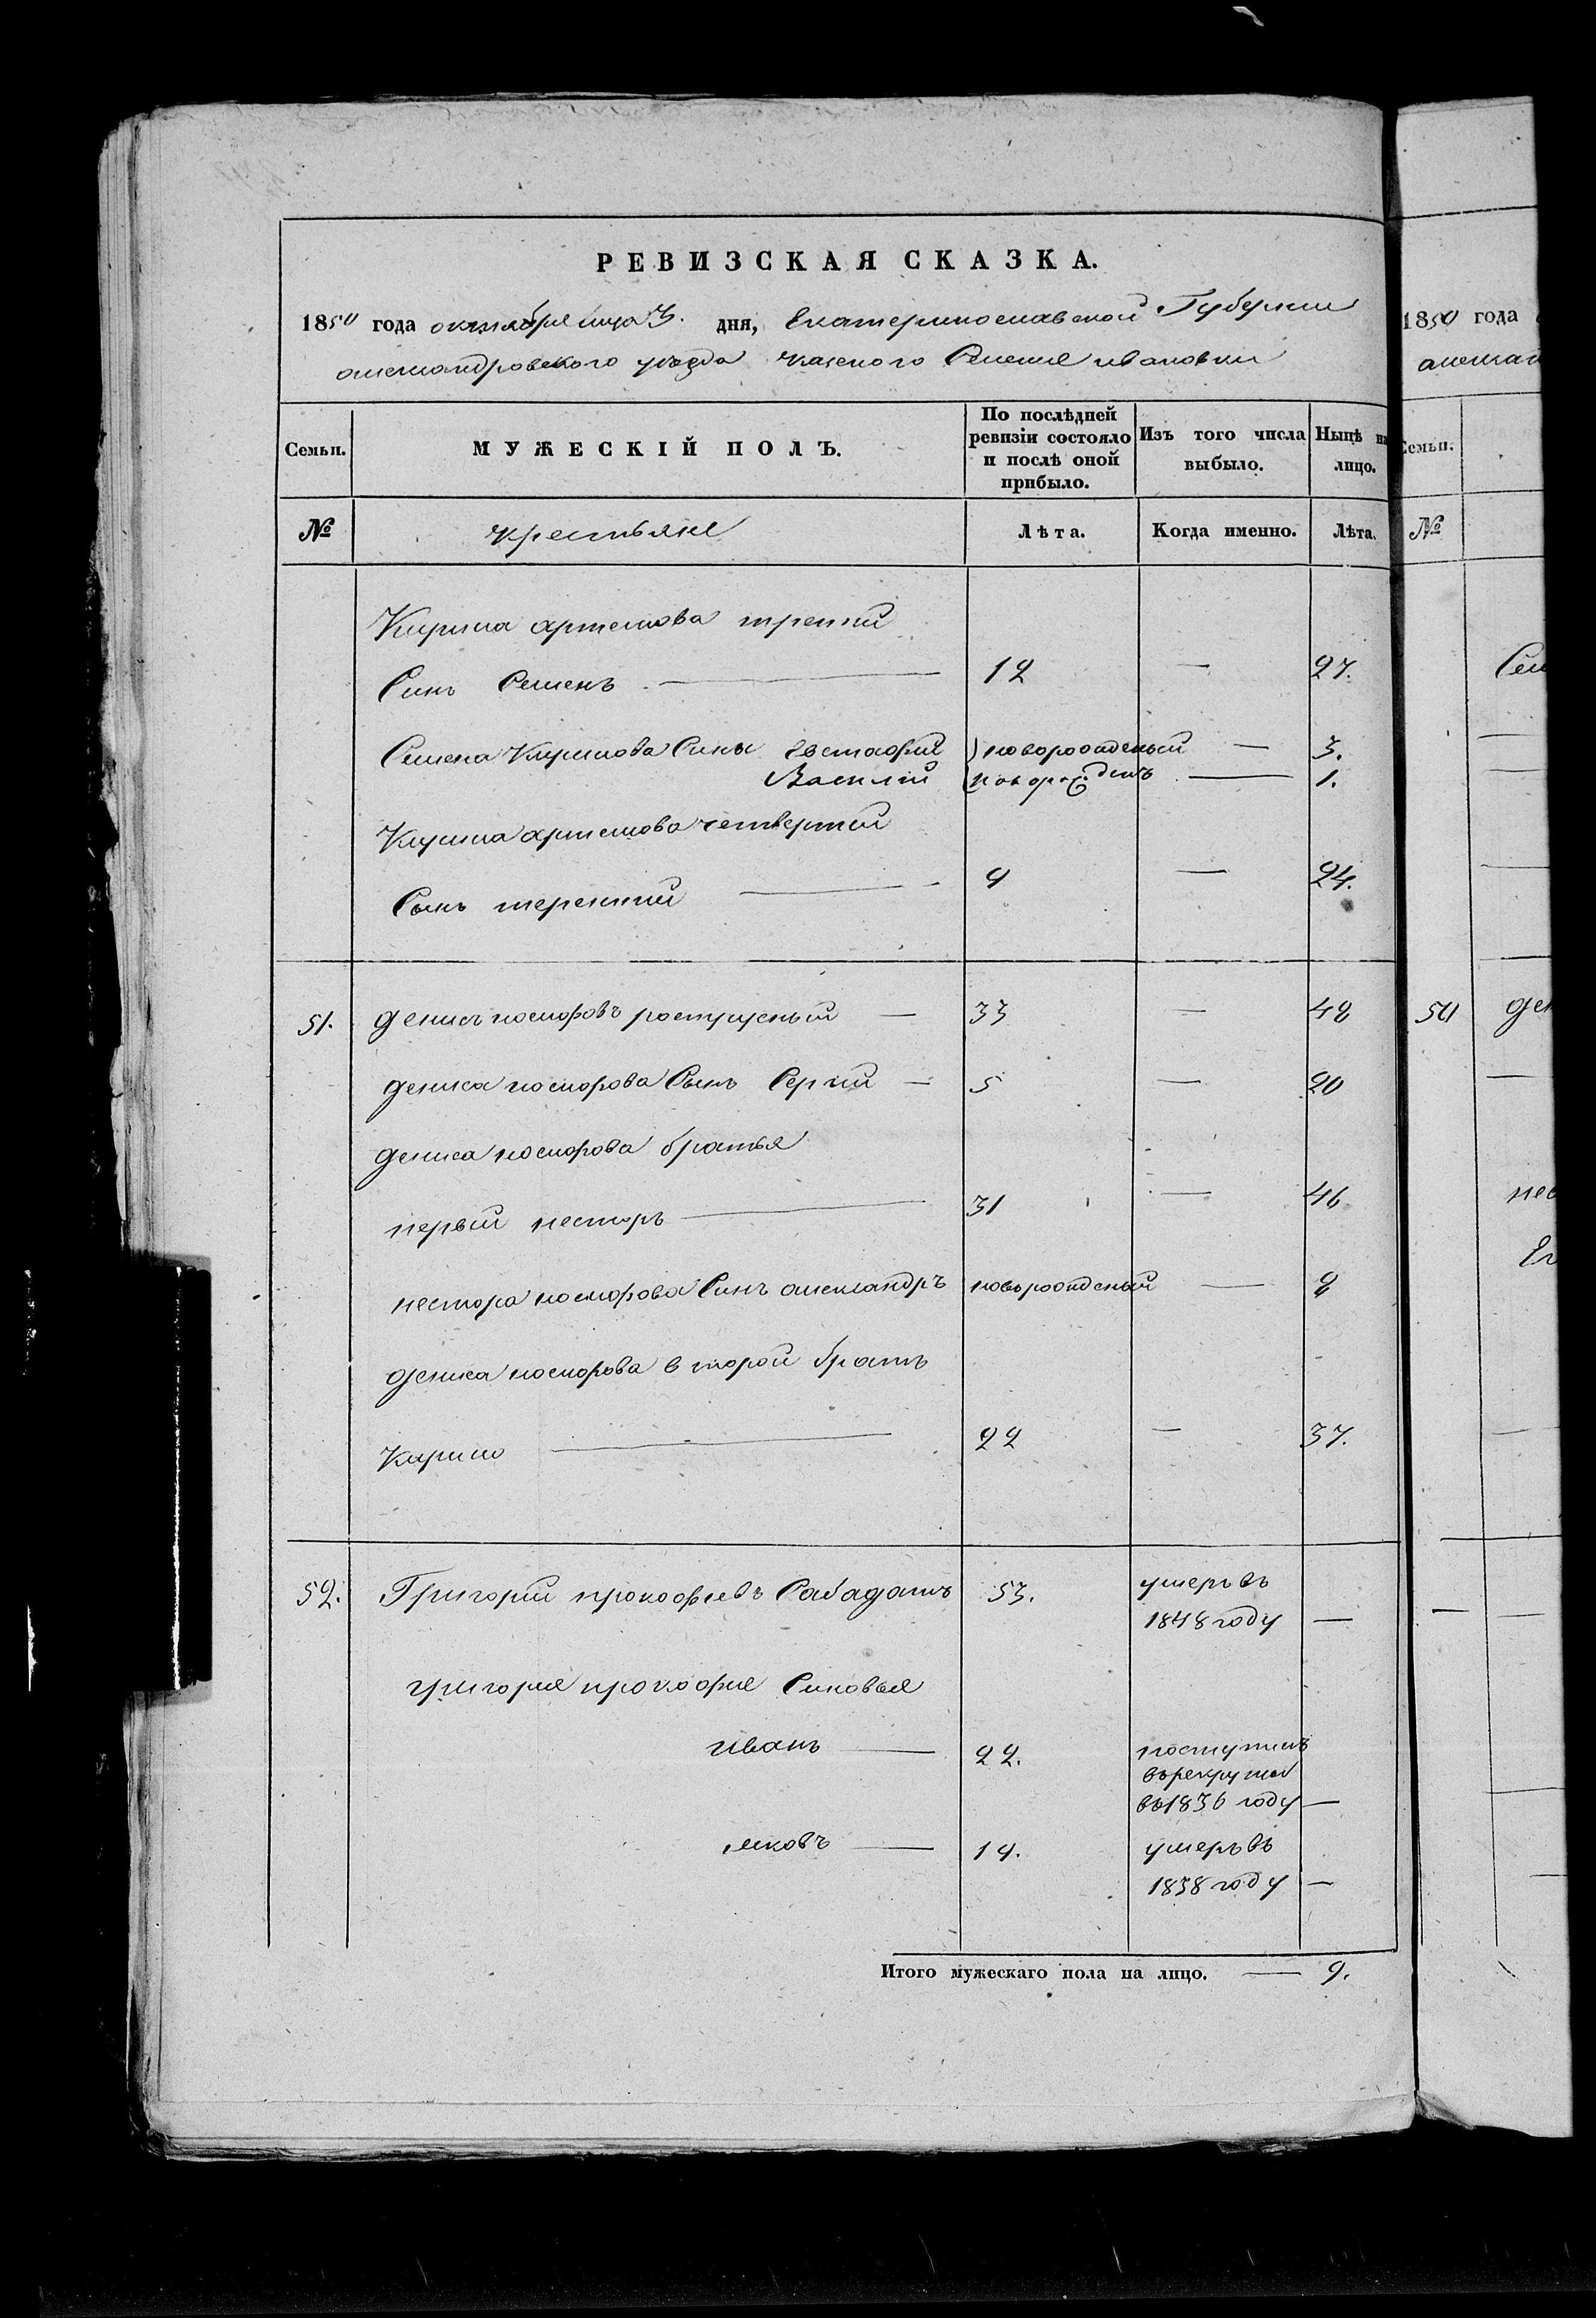 РЕВИЗСКАЯ СКАЗКА.
1850 года октября мца 3. дня, Екатеринославской Губернии
александровского уезда казеного Селения ивановки
Семьи. МУЖЕСКІЙ ПОЛЪ. По послѣдней ревизіи состояло и послѣ оной прибыло. Изъ того числа выбыло. Нынѣ на лицо.
№ крестьяне Лѣта. Когда именно. Лѣта.
Кирила артемова третий
Синъ Семенъ — 12 — 27.
Семена Кирилова Сины Евстафий новорожденый — 3.
Василий новорожденъ — 1.
Кирила артемова четвертий
Сынъ терентий — 9 — 24.
51. денисъ несторовъ — 33 — 48
дениса несторова Сынъ Сергий — 5 — 20
дениса несторова братья
первий несторъ — 31 — 46
нестора несторова Синъ александръ новорожденый — 2
дениса несторова второй братъ
Кирило — 22 — 37.
52. Григорий прокофиевъ 53. умеръ въ
1848 году —
григория прокофия Синовья
иванъ — 22. поступилъ
въ рекруты
въ 1836 году —
яковъ — 19. умеръ въ
1838 году —
Итого мужескаго пола на лицо. — 9.
1850 года
Семьи.
№
50